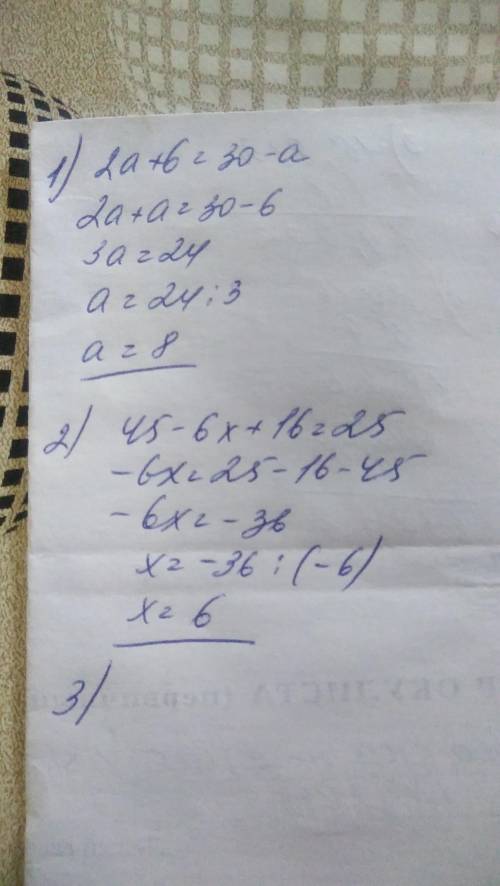 1) 2a+6=30-a
2a+a=30-6
3a=24
a=24:3
a=8
2) 45-6x+16=25
-6x=25-16-45
-6x=-36
x=-36:(-6)
x=6
3)